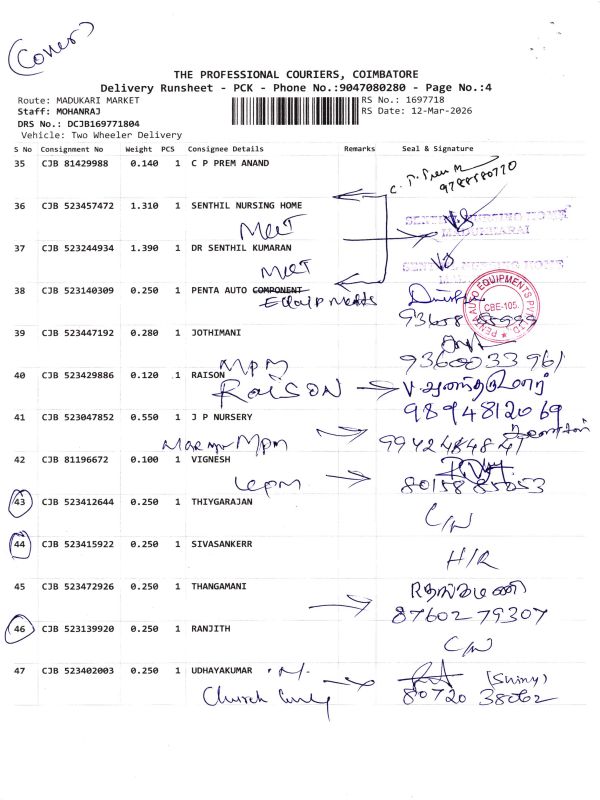 (Cover)
THE PROFESSIONAL COURIERS, COIMBATORE
Delivery Runsheet - PCK - Phone No.:9047080280 - Page No.:4
Route: MADUKARI MARKET RS No.: 1697718
Staff: MOHANRAJ RS Date: 12-Mar-2026
DRS No.: DCJB169771804
Vehicle: Two Wheeler Delivery
S No Consignment No Weight PCS Consignee Details Remarks Seal & Signature
35 CJB 81429988 0.140 1 C P PREM ANAND
C. P. Prem
9788580770
36 CJB 523457472 1.310 1 SENTHIL NURSING HOME
SENTHIL NURSING HOME
MADUKKARAI
37 CJB 523244934 1.390 1 DR SENTHIL KUMARAN
SENTHIL NURSING HOME
38 CJB 523140309 0.250 1 PENTA AUTO COMPONENT
PENTA AUTO EQUIPMENTS PVT LTD
CBE-105.
39 CJB 523447192 0.280 1 JOTHIMANI
9360033961
40 CJB 523429886 0.120 1 RAISON
MPM
RaiSON
9894812069
41 CJB 523047852 0.550 1 J P NURSERY
MPM
9942484847
42 CJB 81196672 0.100 1 VIGNESH
43 CJB 523412644 0.250 1 THIYGARAJAN
C/N
44 CJB 523415922 0.250 1 SIVASANKERR
H/R
45 CJB 523472926 0.250 1 THANGAMANI
8760279307
46 CJB 523139920 0.250 1 RANJITH
C/N
47 CJB 523402003 0.250 1 UDHAYAKUMAR
(Shiny)
Church 80720 38062